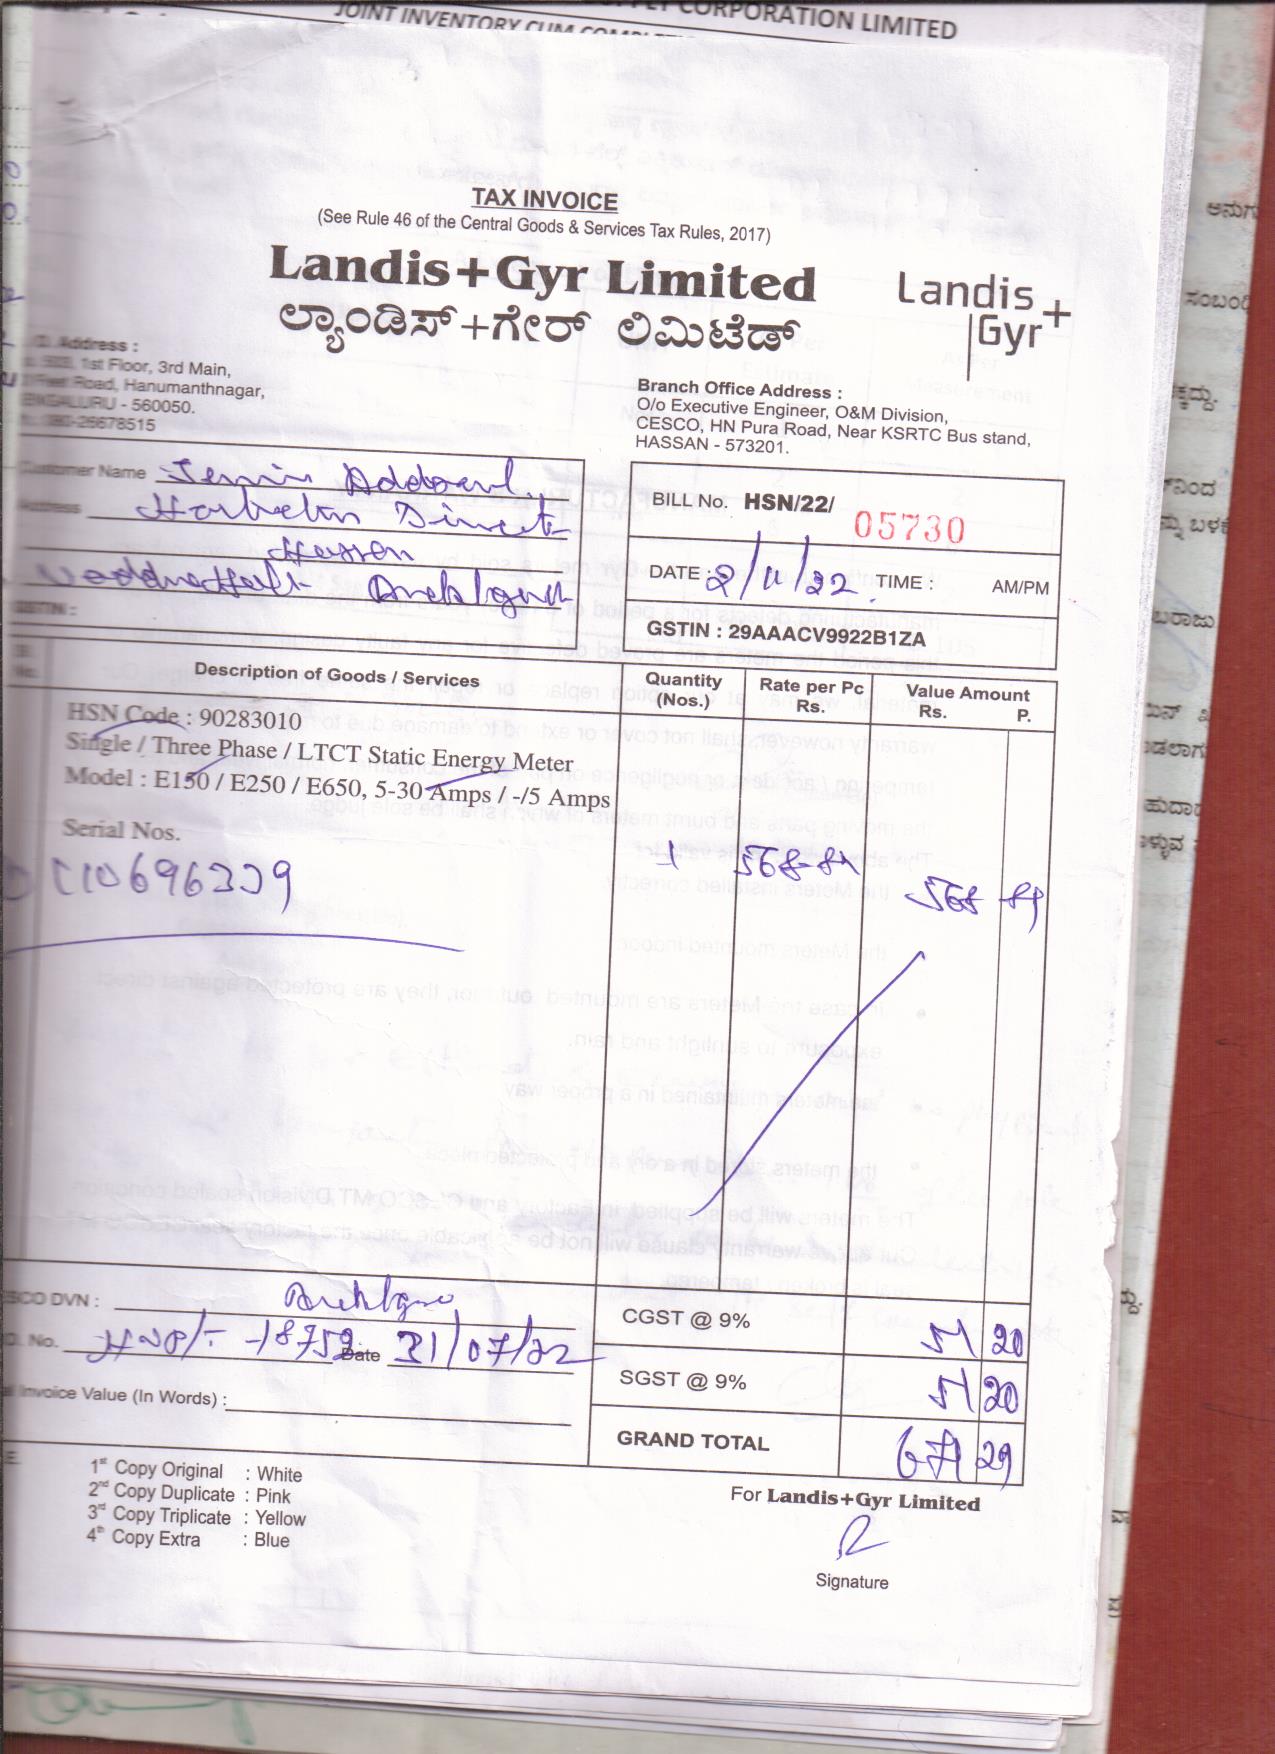 CORPORATION LIMITED
JOINT INVENTORY CUM
TAX INVOICE
(See Rule 46 of the Central Goods & Services Tax Rules, 2017)
Landis+Gyr Limited
ಲ್ಯಾಂಡಿಸ್+ಗೇರ್ ಲಿಮಿಟೆಡ್
Landis+
Gyr
Address :
1st Floor, 3rd Main,
Road, Hanumanthnagar,
BENGALURU - 560050.
080-26678515
Branch Office Address :
O/o Executive Engineer, O&M Division,
CESCO, HN Pura Road, Near KSRTC Bus stand,
HASSAN - 573201.
Customer Name
Address
Hassan
GSTIN :
BILL No. HSN/22/ 05730
DATE : 2/11/22. TIME : AM/PM
GSTIN : 29AAACV9922B1ZA
Sl. No. Description of Goods / Services Quantity (Nos.) Rate per Pc Rs. Value Amount Rs. P.
HSN Code : 90283010
Single / Three Phase / LTCT Static Energy Meter
Model : E150 / E250 / E650, 5-30 Amps / -/5 Amps
Serial Nos.
1 568-89 568 89
DVN :
No. 18752 Date 31/07/22
Invoice Value (In Words) :
CGST @ 9% 51 20
SGST @ 9% 51 20
GRAND TOTAL 671 29
1st Copy Original : White
2nd Copy Duplicate : Pink
3rd Copy Triplicate : Yellow
4th Copy Extra : Blue
For Landis+Gyr Limited
Signature